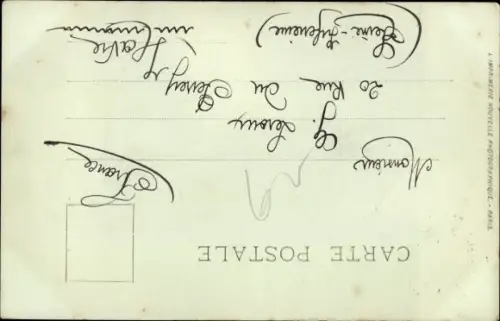 CARTE POSTALE
Monsieur
G. Leroux
20 Rue du Perrey
Havre
(Seine-Inférieure)
France
L'IMPRIMERIE NOUVELLE PHOTOGRAPHIQUE - PARIS